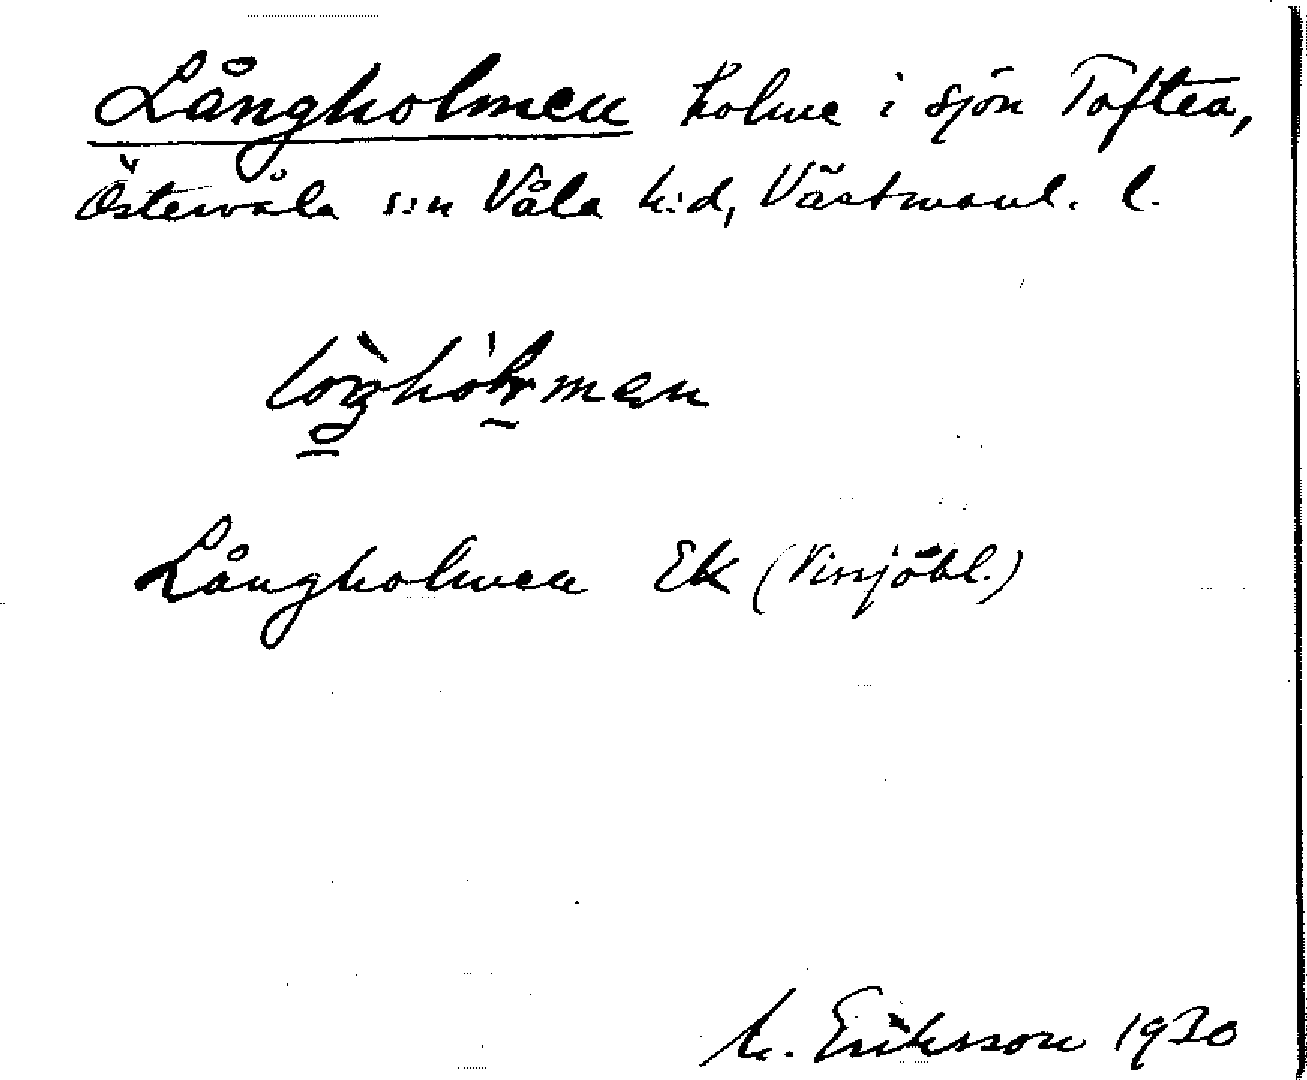 Långholmen holme i sjön Toften,
Östervåla s:n Våla h:d, Västmanl. l.
Långholmen Ek (Vinsjöbl.)
M. Eriksson 1930